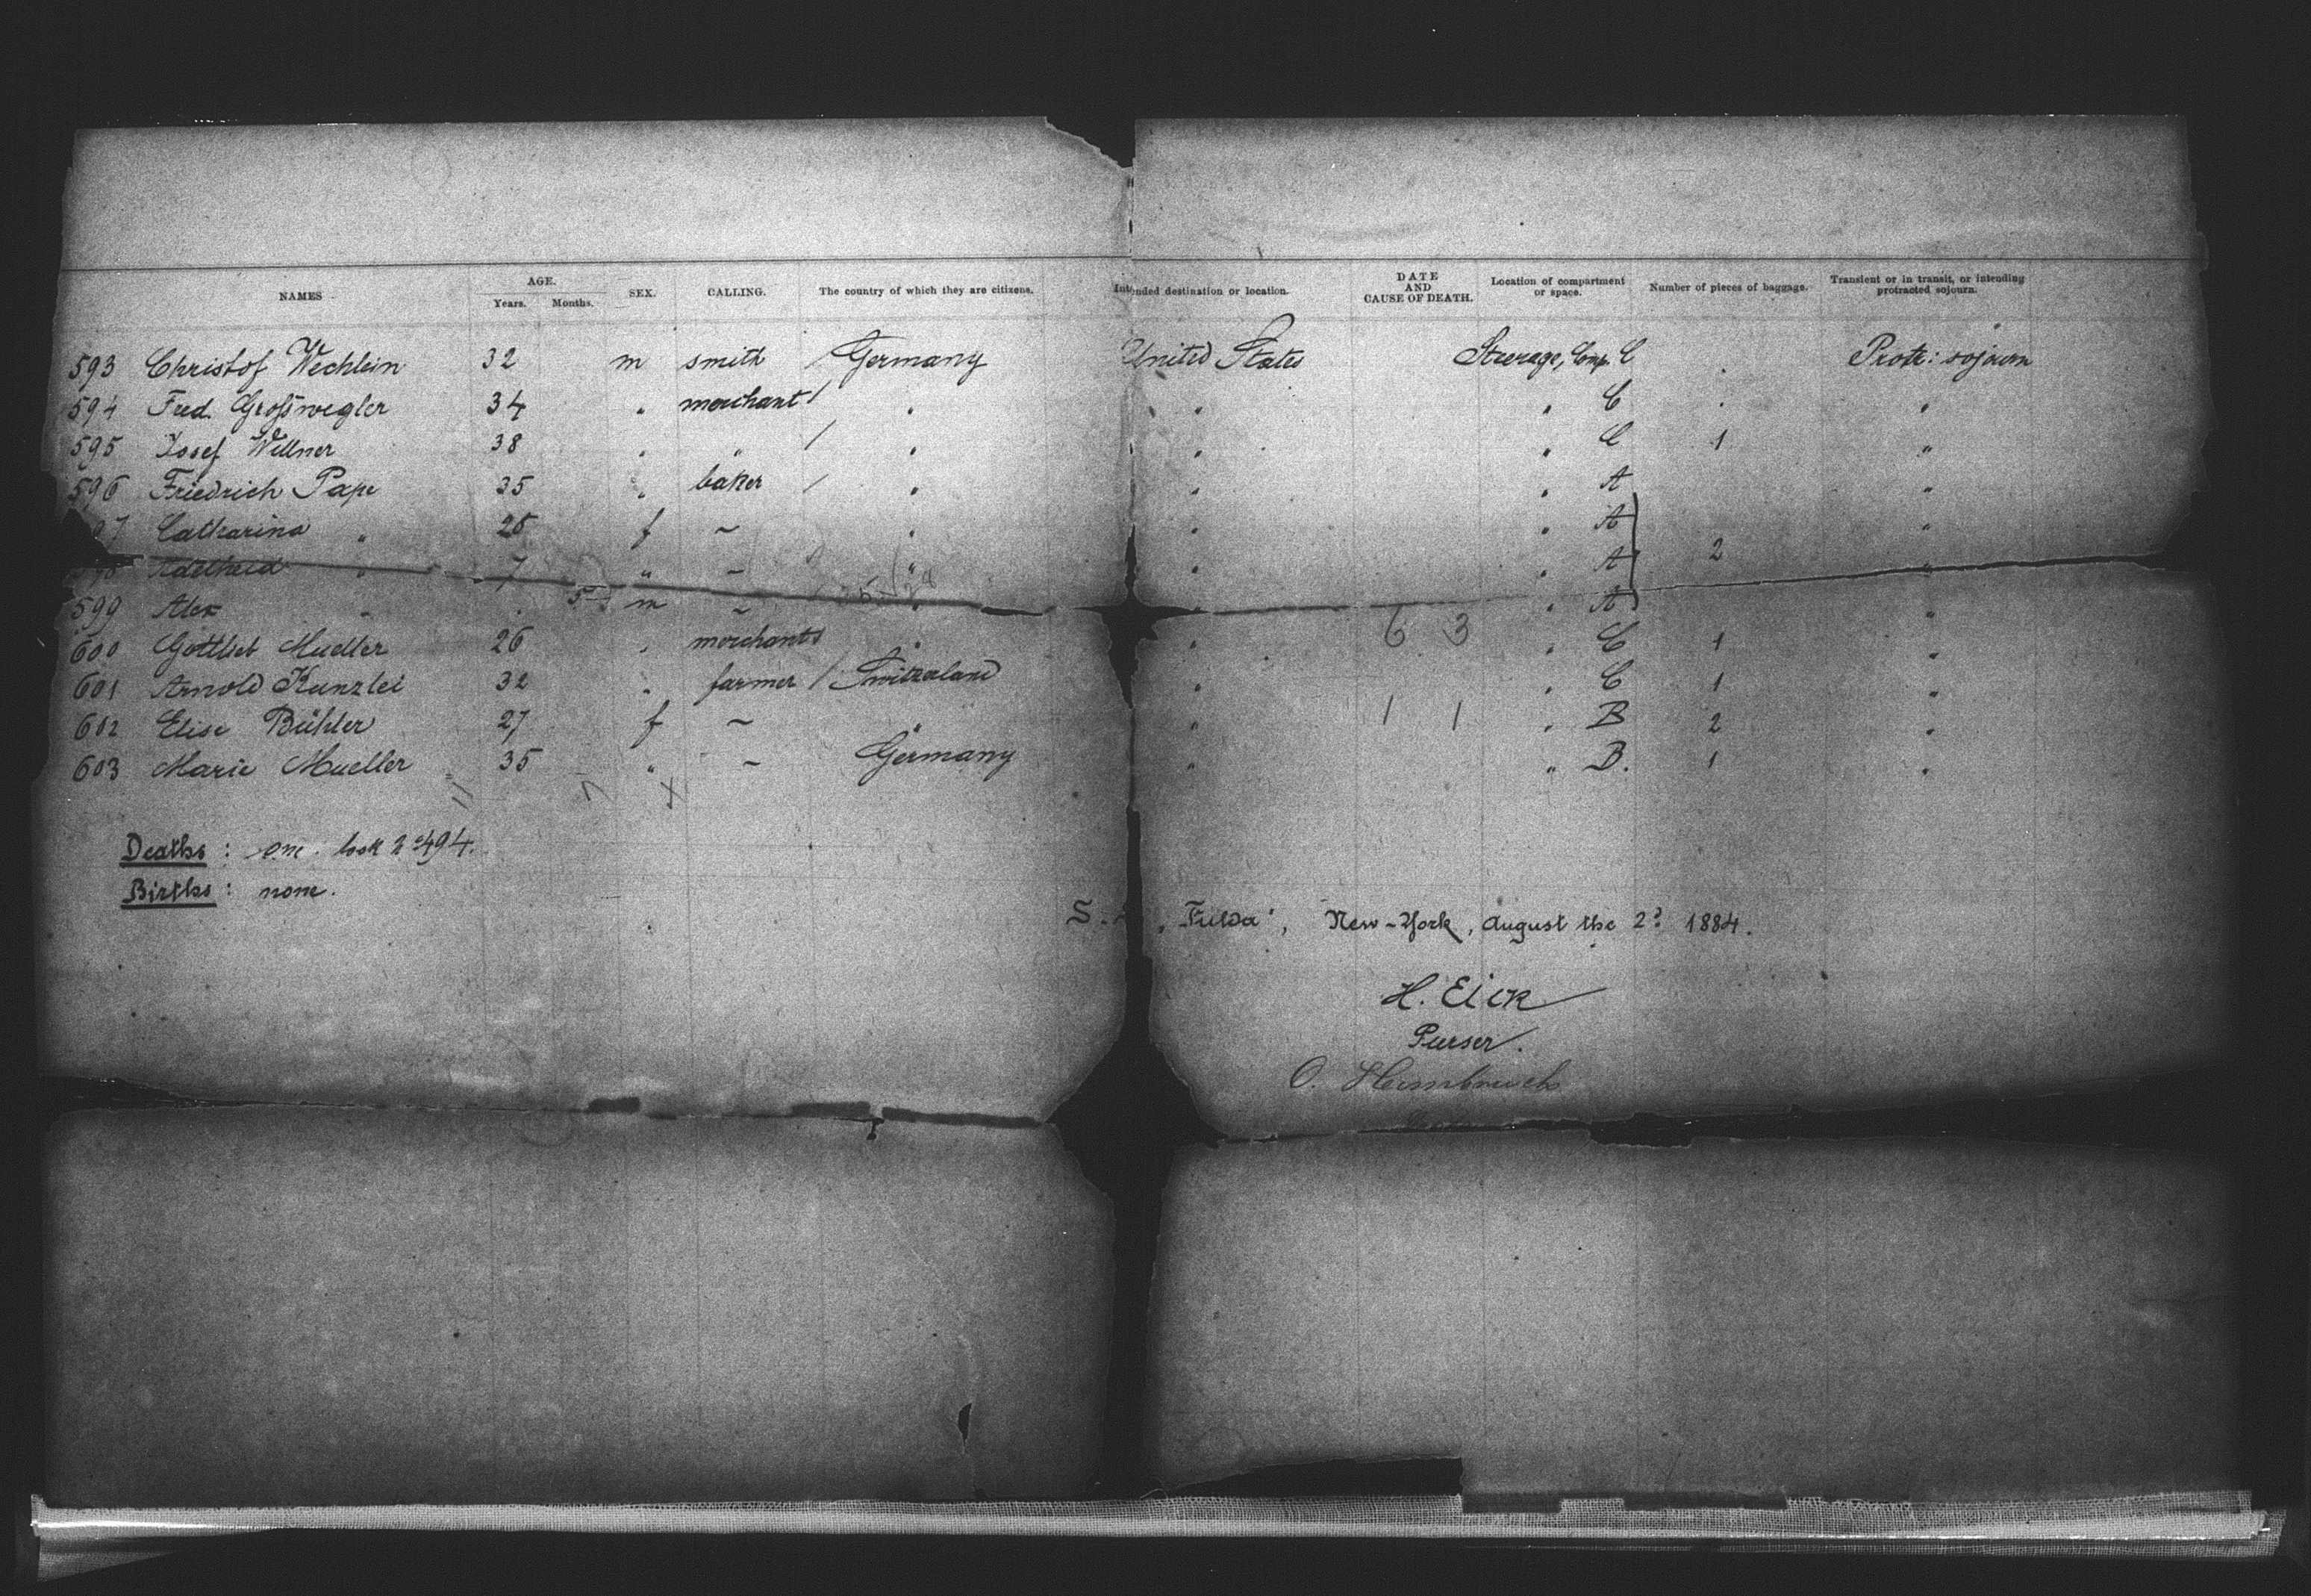 NAMES AGE. Years. Months. SEX. CALLING. The country of which they are citizens. Intended destination or location. DATE AND CAUSE OF DEATH. Location of compartment or space. Number of pieces of baggage. Transient or in transit, or intending protracted sojourn.
593 Christof Wechlein 32 m smith / Germany United States Steerage, Comp. C Protr: sojourn
594 Fred. Großwegler 34 " merchant / " " " C "
595 Josef Willner 38 " " / " " " C 1 "
596 Friedrich Pape 35 " baker / " " " A "
97 Catharina " 26 f ~ " " " A "
98 Adelheid " 7 " ~ " " " A 2 "
599 Alex " 5 m ~ " " " A "
600 Gottlieb Mueller 26 " merchant / " " 6 3 " C 1 "
601 Arnold Kunzlei 32 " farmer / Switzerland " " C 1 "
602 Elise Bühler 27 f ~ " " 1 1 " B 2 "
603 Marie Mueller 35 " ~ Germany " " B. 1 "
11 7 4
Deaths: one. look No 494.
Births: none.
S. "Fulda", New-York, August the 2d 1884.
H. Eick
Purser.
O. Heimbruch